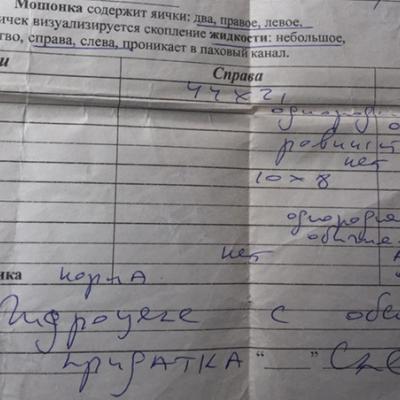 Мошонка содержит яички: два, правое, левое.
ичек визуализируется скопление жидкости: небольшое,
тво, справа, слева, проникает в паховый канал.
и Справа
44 x 21
однород
нет
10 x 8
однородн
обычн
нет
ика норма
Гидроцеле с обе
придатка “ ”